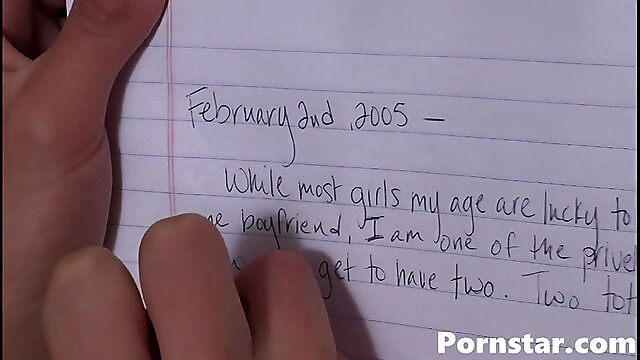 February 2nd, 2005 —
While most girls my age are lucky to
boyfriend, I am one of the
get to have two. Two
Pornstar.com